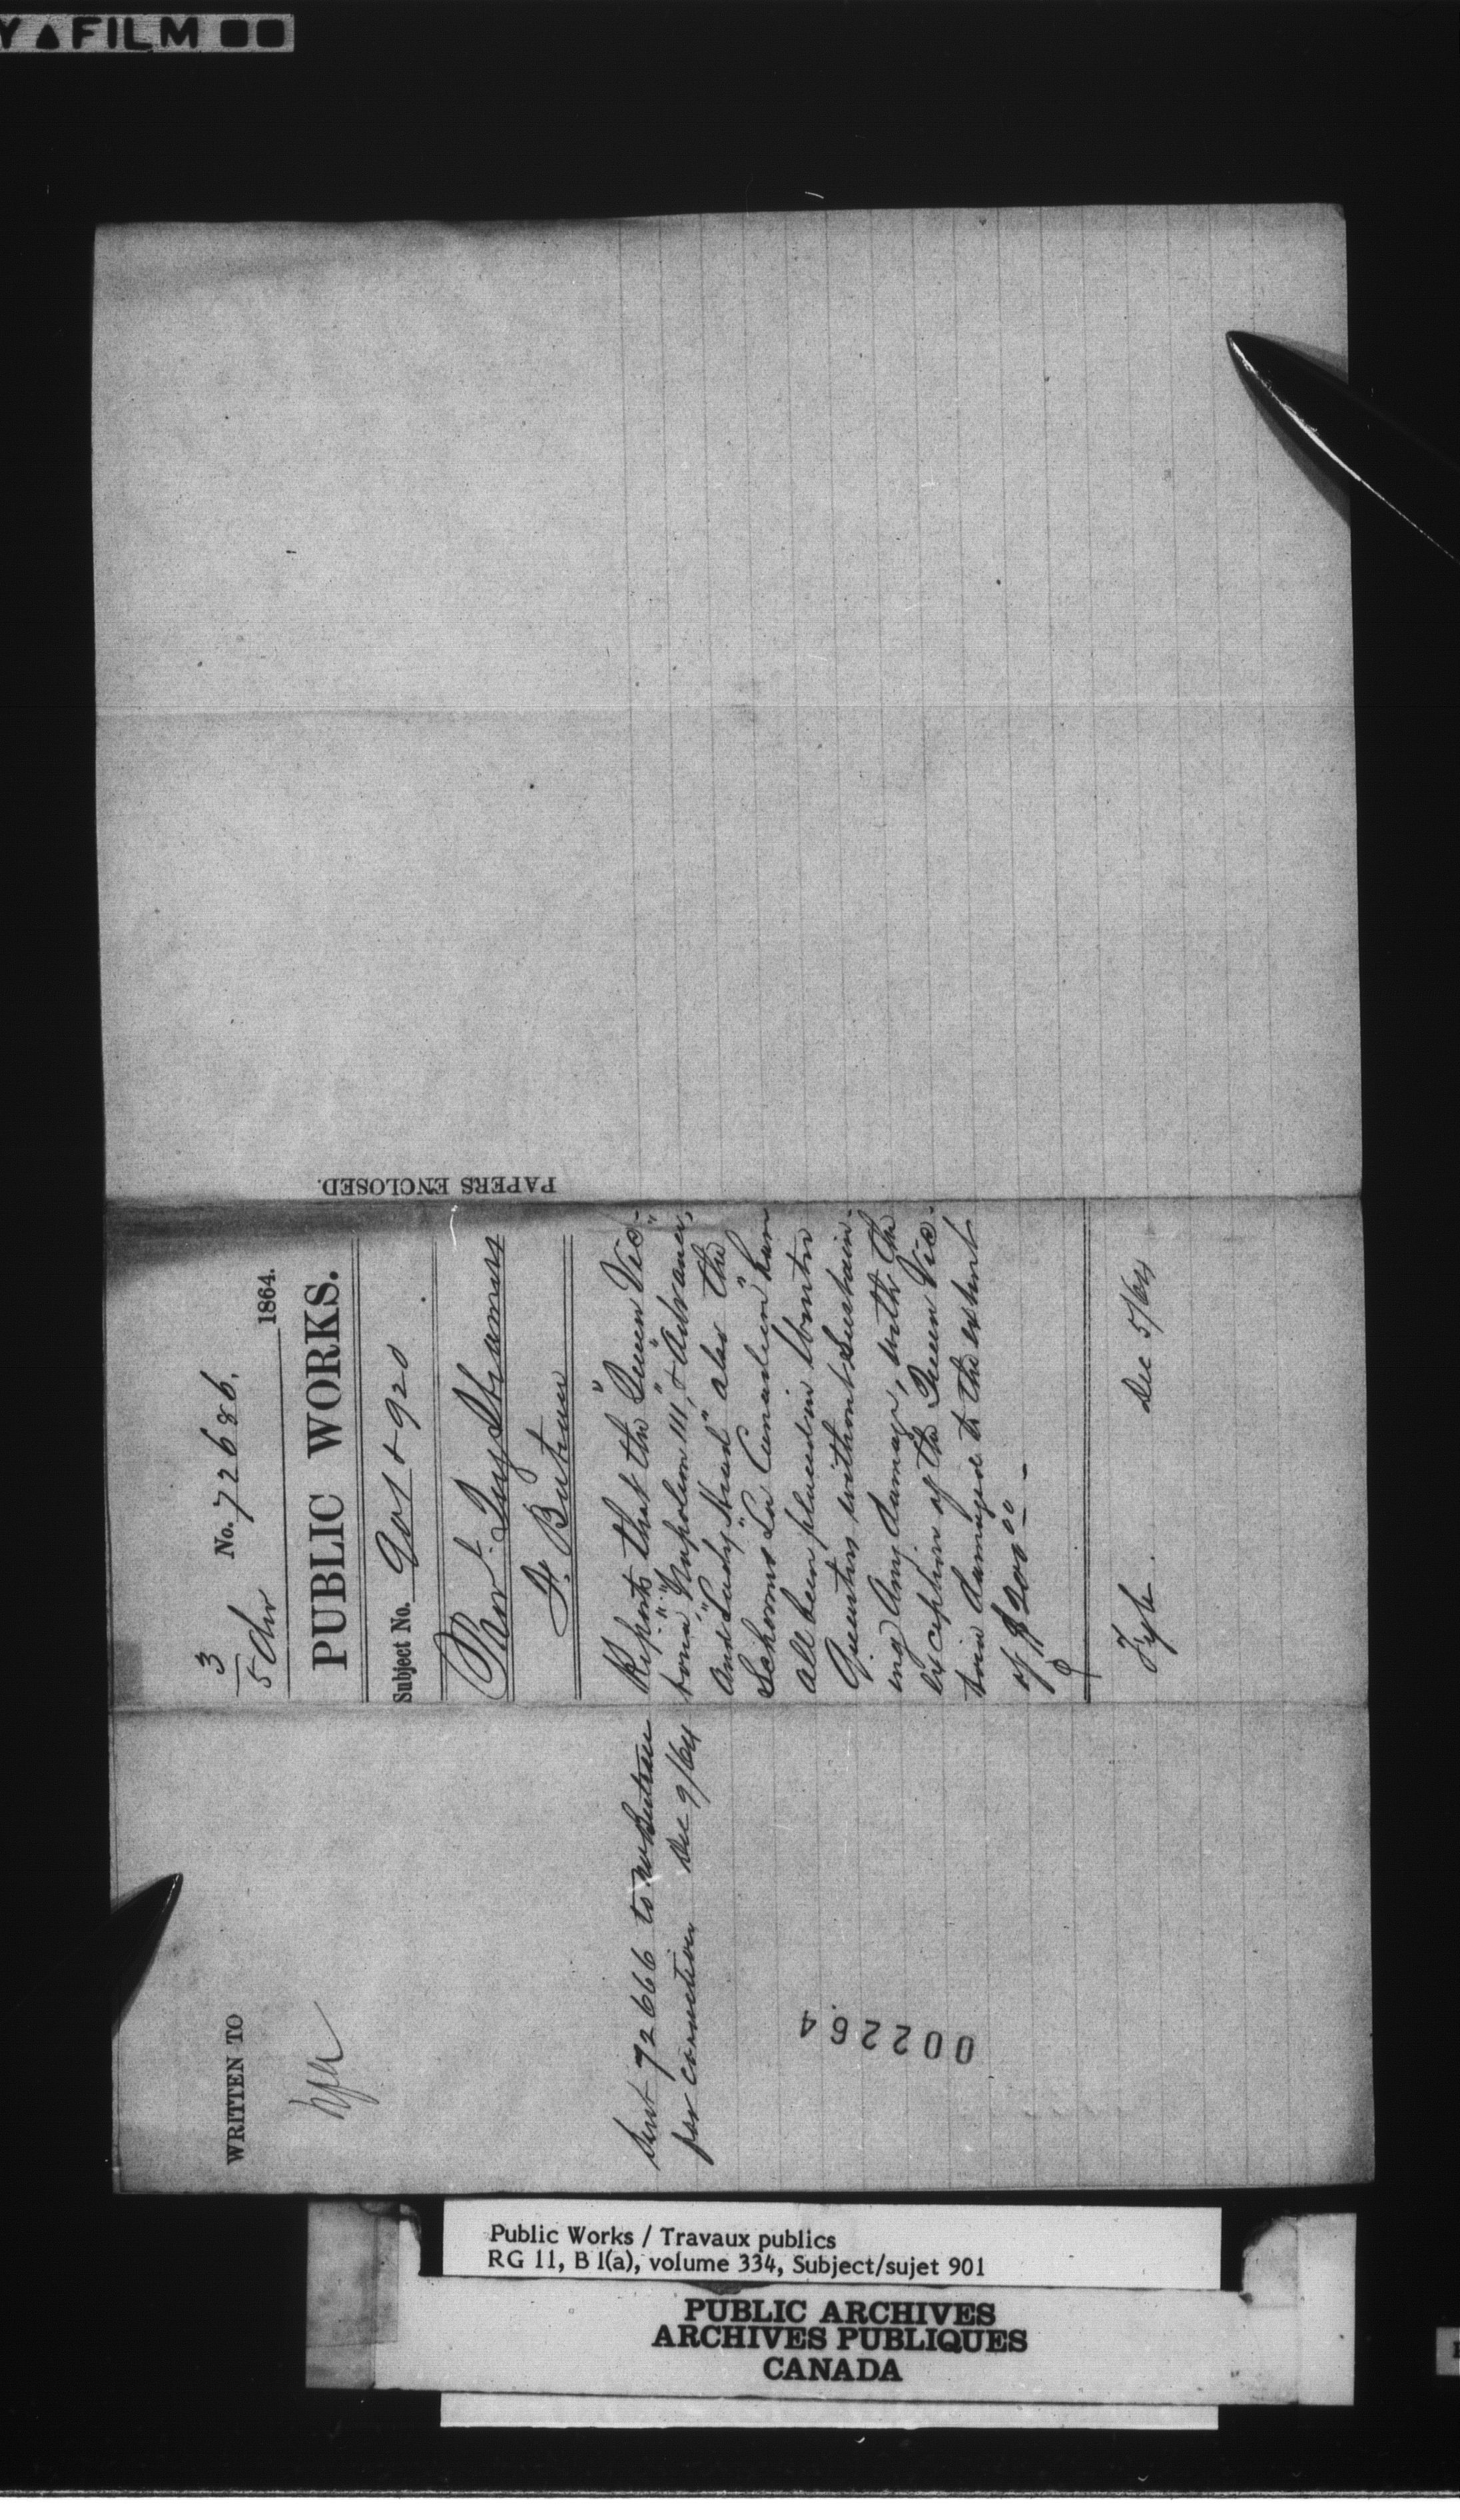 Y▲FILM
3
5 Dec No. 72686.
1864.
PUBLIC WORKS.
Subject No. 901 & 920
Prov.l Tug Steamers
F. Buteau
Reports that the "Queen Vic-
toria" "Napoleon III", & "Advance",
and "Lady Head" also the
Schooner "La Canadienne" have
all been placed in Winter
Quarters without sustain-
ing any damage, with the
exception of the Queen Vic-
toria damaged to the extent
of $200.00 —
Fyle. Dec 5/64
PAPERS ENCLOSED.
WRITTEN TO
Sent 72666 to Mr Buteau
for correction Dec 9/64
002264
Public Works / Travaux publics
RG 11, B 1(a), volume 334, Subject/sujet 901
PUBLIC ARCHIVES
ARCHIVES PUBLIQUES
CANADA